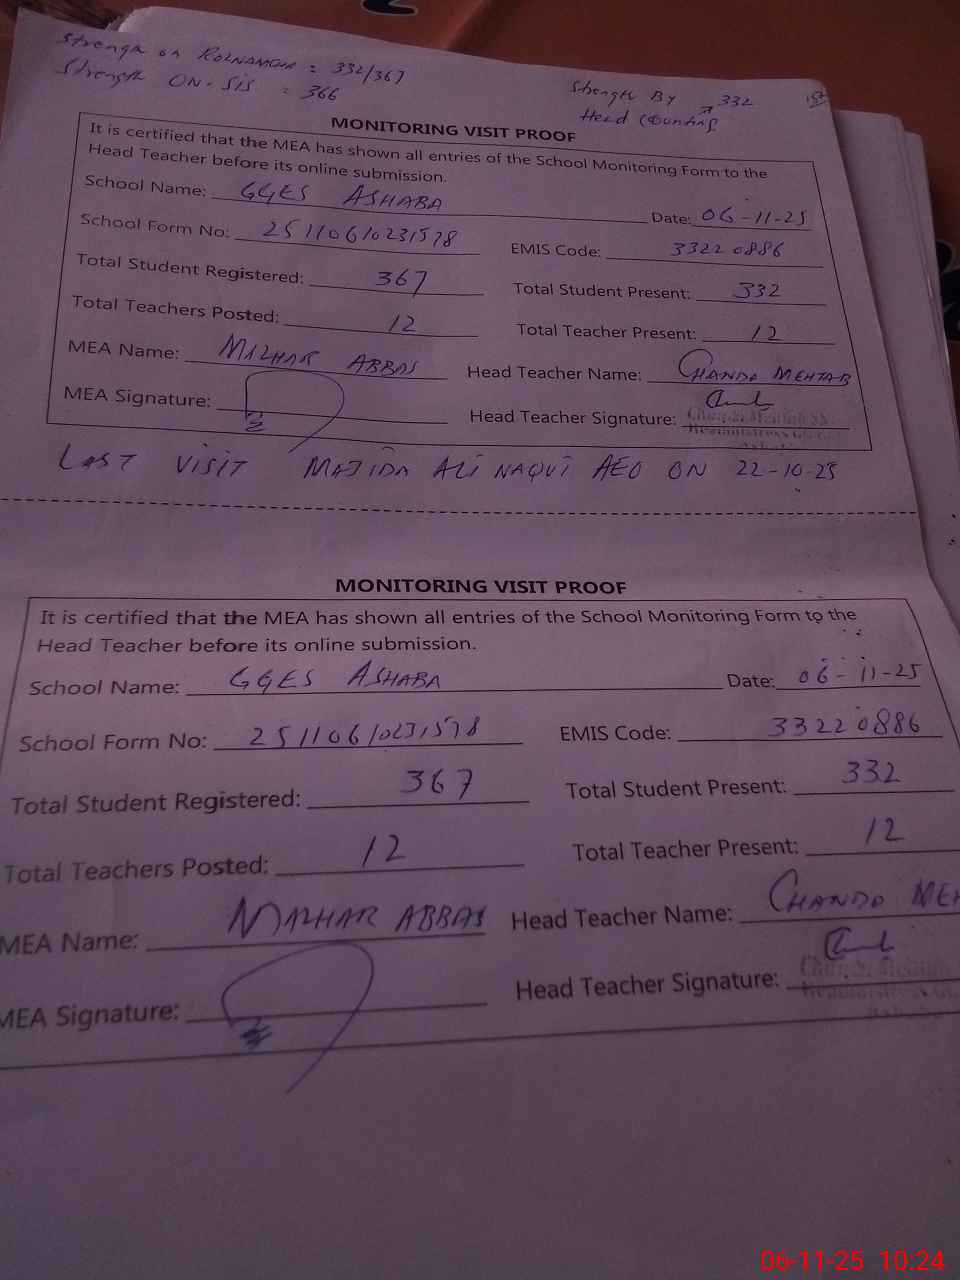 Strength on ROZNAMCHA = 332/367
Strength ON-SIS = 366
Strength By → 332
Head Counting
MONITORING VISIT PROOF
It is certified that the MEA has shown all entries of the School Monitoring Form to the
Head Teacher before its online submission.
School Name: GGES ASHABA Date: 06-11-25
School Form No: 25110610231578 EMIS Code: 33220886
Total Student Registered: 367 Total Student Present: 332
Total Teachers Posted: 12 Total Teacher Present: 12
MEA Name: MAZHAR ABBAS Head Teacher Name: CHANDA MEHTAB
MEA Signature: Head Teacher Signature:
LAST VISIT MAJIDA ALI NAQVI AEO ON 22-10-25
MONITORING VISIT PROOF
It is certified that the MEA has shown all entries of the School Monitoring Form to the
Head Teacher before its online submission.
School Name: GGES ASHABA Date: 06-11-25
School Form No: 25110610231578 EMIS Code: 33220886
Total Student Registered: 367 Total Student Present: 332
Total Teachers Posted: 12 Total Teacher Present: 12
MEA Name: MAZHAR ABBAS Head Teacher Name: CHANDA MEH
MEA Signature: Head Teacher Signature:
06-11-25 10:24